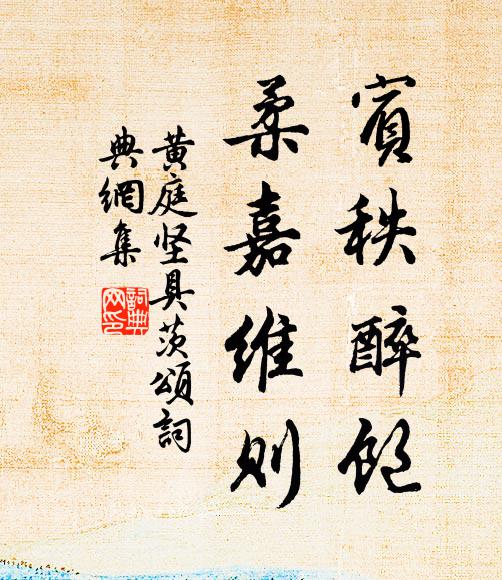 賓秩醉飽
柔嘉維則
黄庭坚具茨頌詞
典網集
詞典
网印